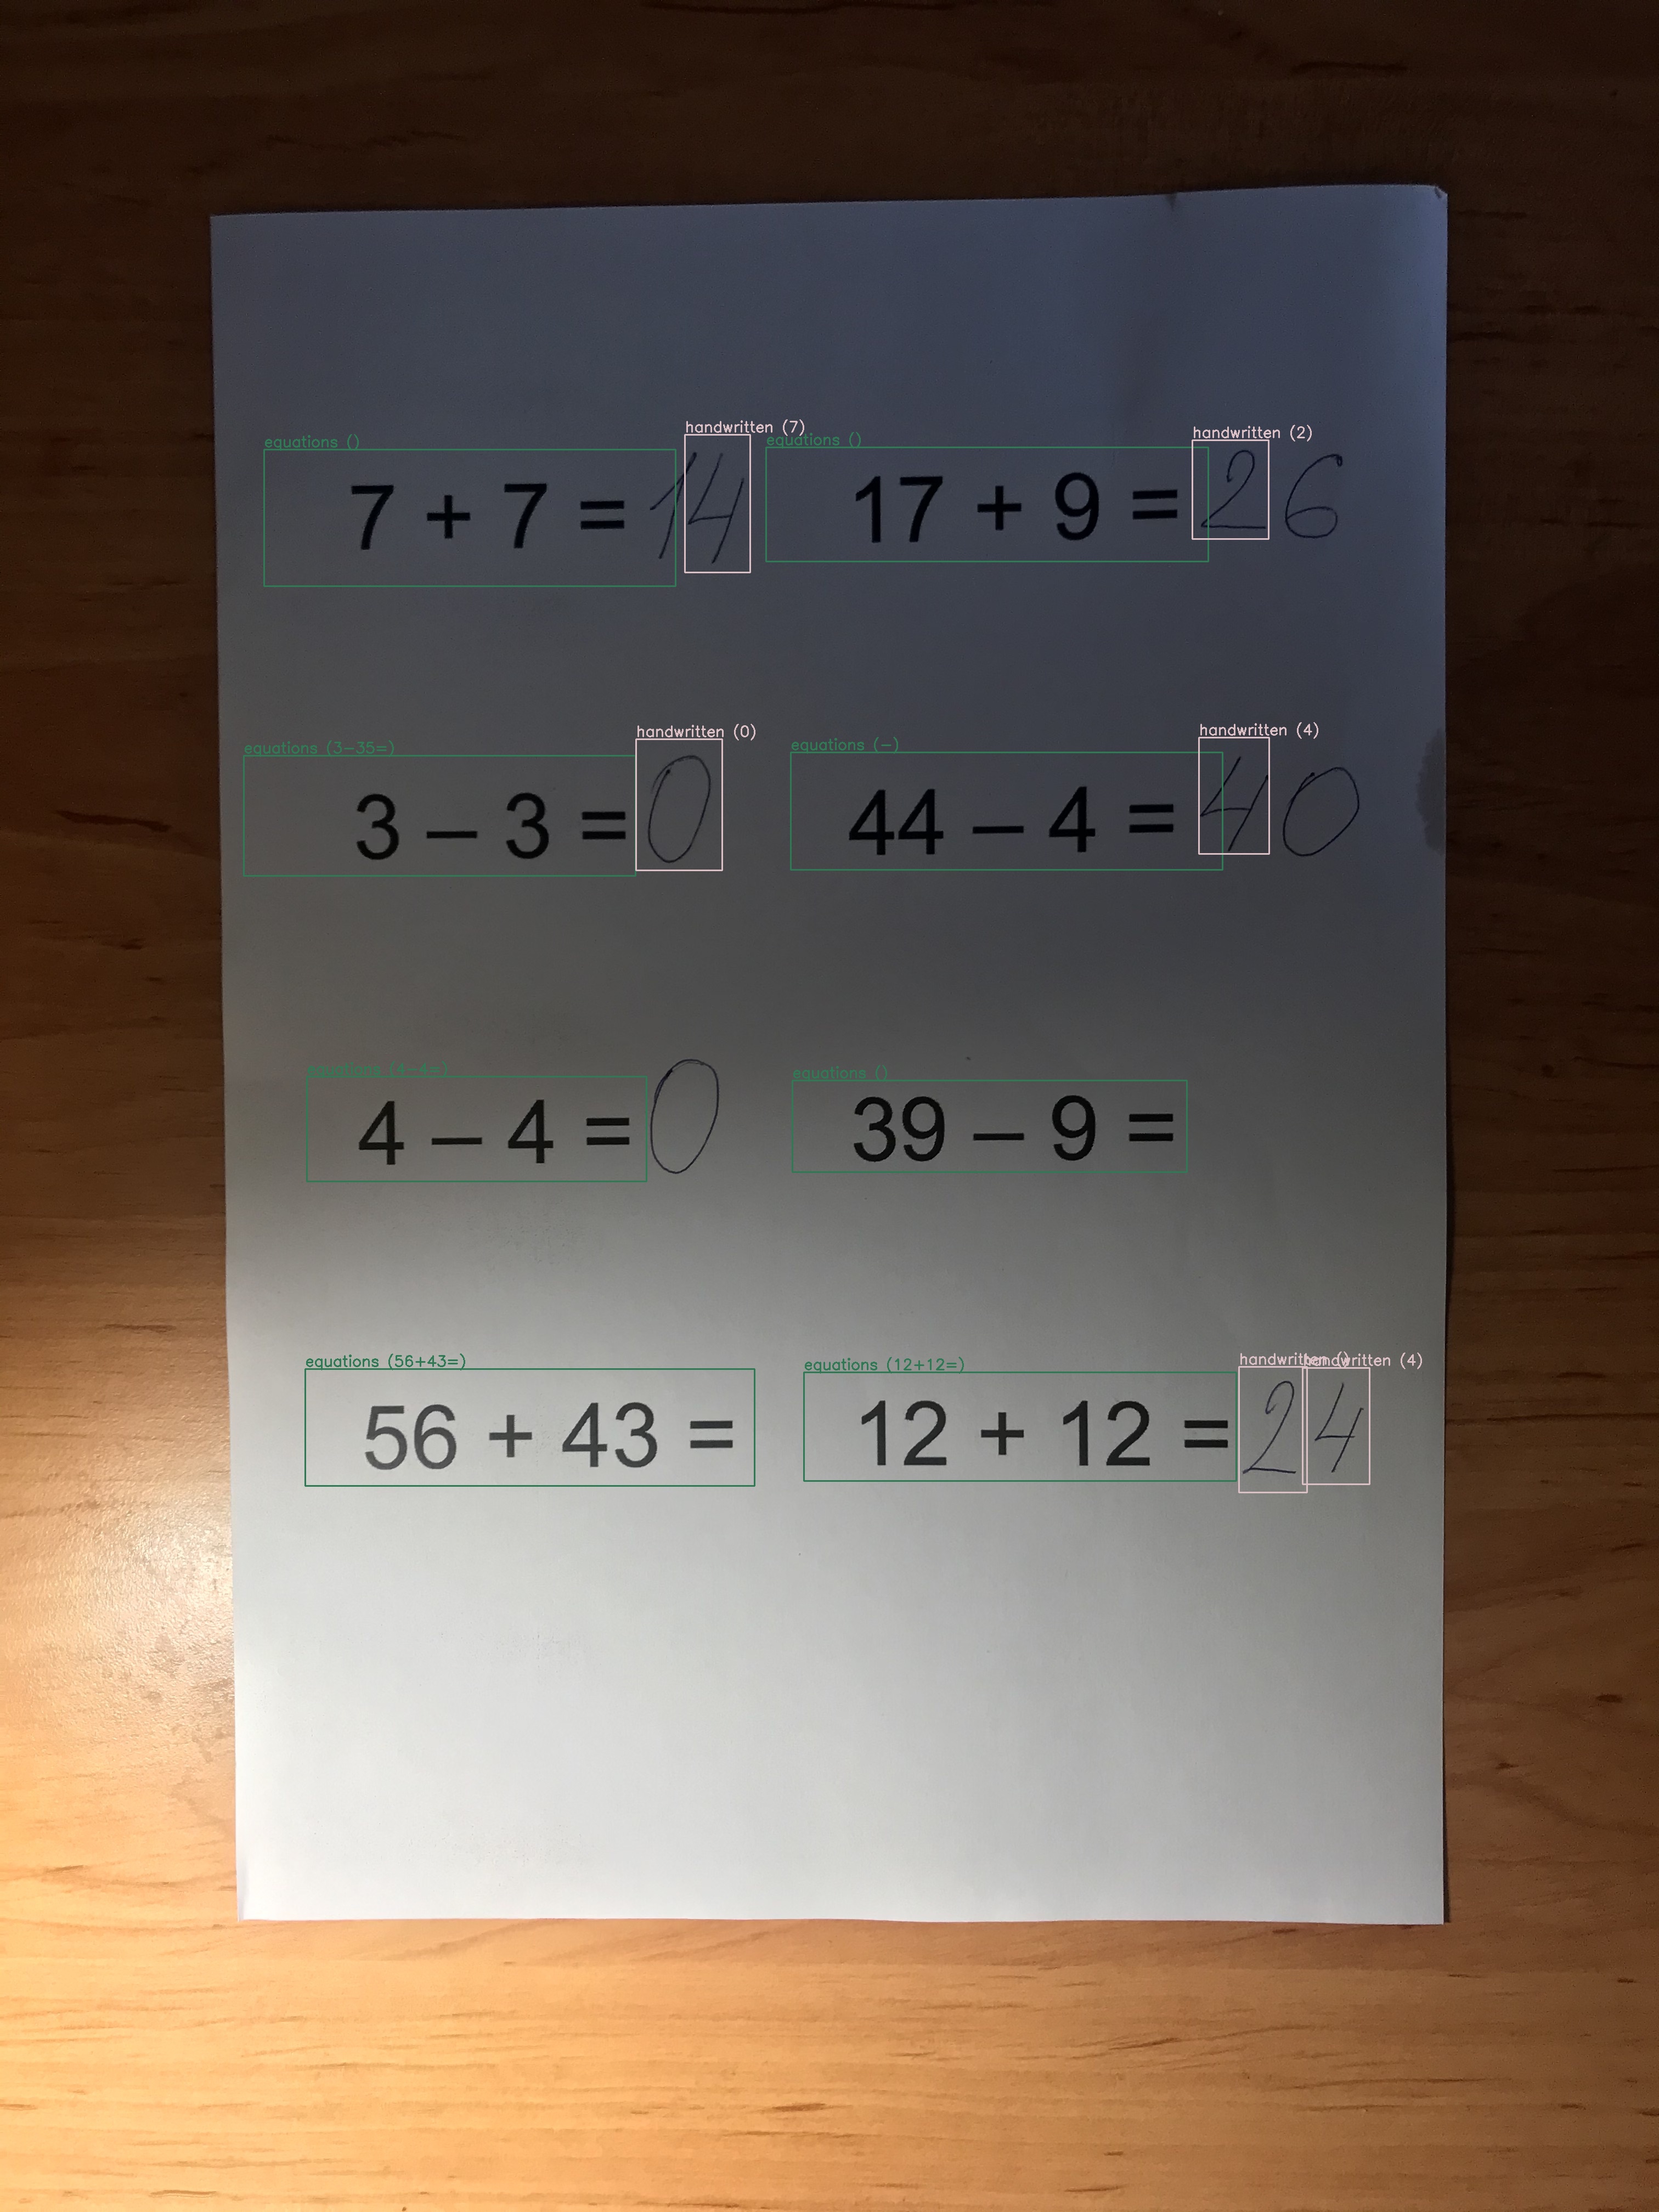 equations () handwritten (7) equations () handwritten (2)
7 + 7 = 14 17 + 9 = 26
equations (3-35=) handwritten (0) equations (-) handwritten (4)
3 – 3 = 0 44 – 4 = 40
equations (4-4=) equations ()
4 – 4 = 0 39 – 9 =
equations (56+43=) equations (12+12=) handwritten () handwritten (4)
56 + 43 = 12 + 12 = 24